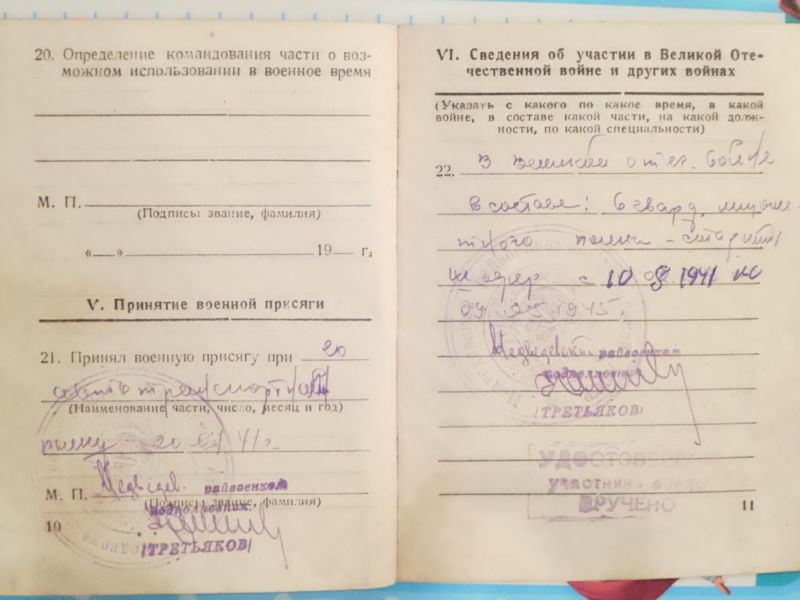 20. Определение командования части о воз-
можном использовании в военное время
М. П.
(Подписы звание, фамилия)
«——» 19 г.
V. Принятие военной присяги
21. Принял военную присягу при 20
автотранспортном
(Наименование части, число, месяц и год)
полку 20 41 г.
М. П. Медведев. райвоенком
подполковник
(Подписы звание, фамилия)
10
/ТРЕТЬЯКОВ/
VI. Сведения об участии в Великой Оте-
чественной войне и других войнах
(Указать с какого по какое время, в какой
войне, в составе какой части, на какой долж-
ности, по какой специальности)
22. В Великой отеч. войне
В составе: 6 гвард. миноме-
тного полка -
шофер с 10 1941 по
09 05 1945.
Медведевский райвоенком
подполковник
/ТРЕТЬЯКОВ/
УДОСТОВЕР
участника войны
ВРУЧЕНО
11